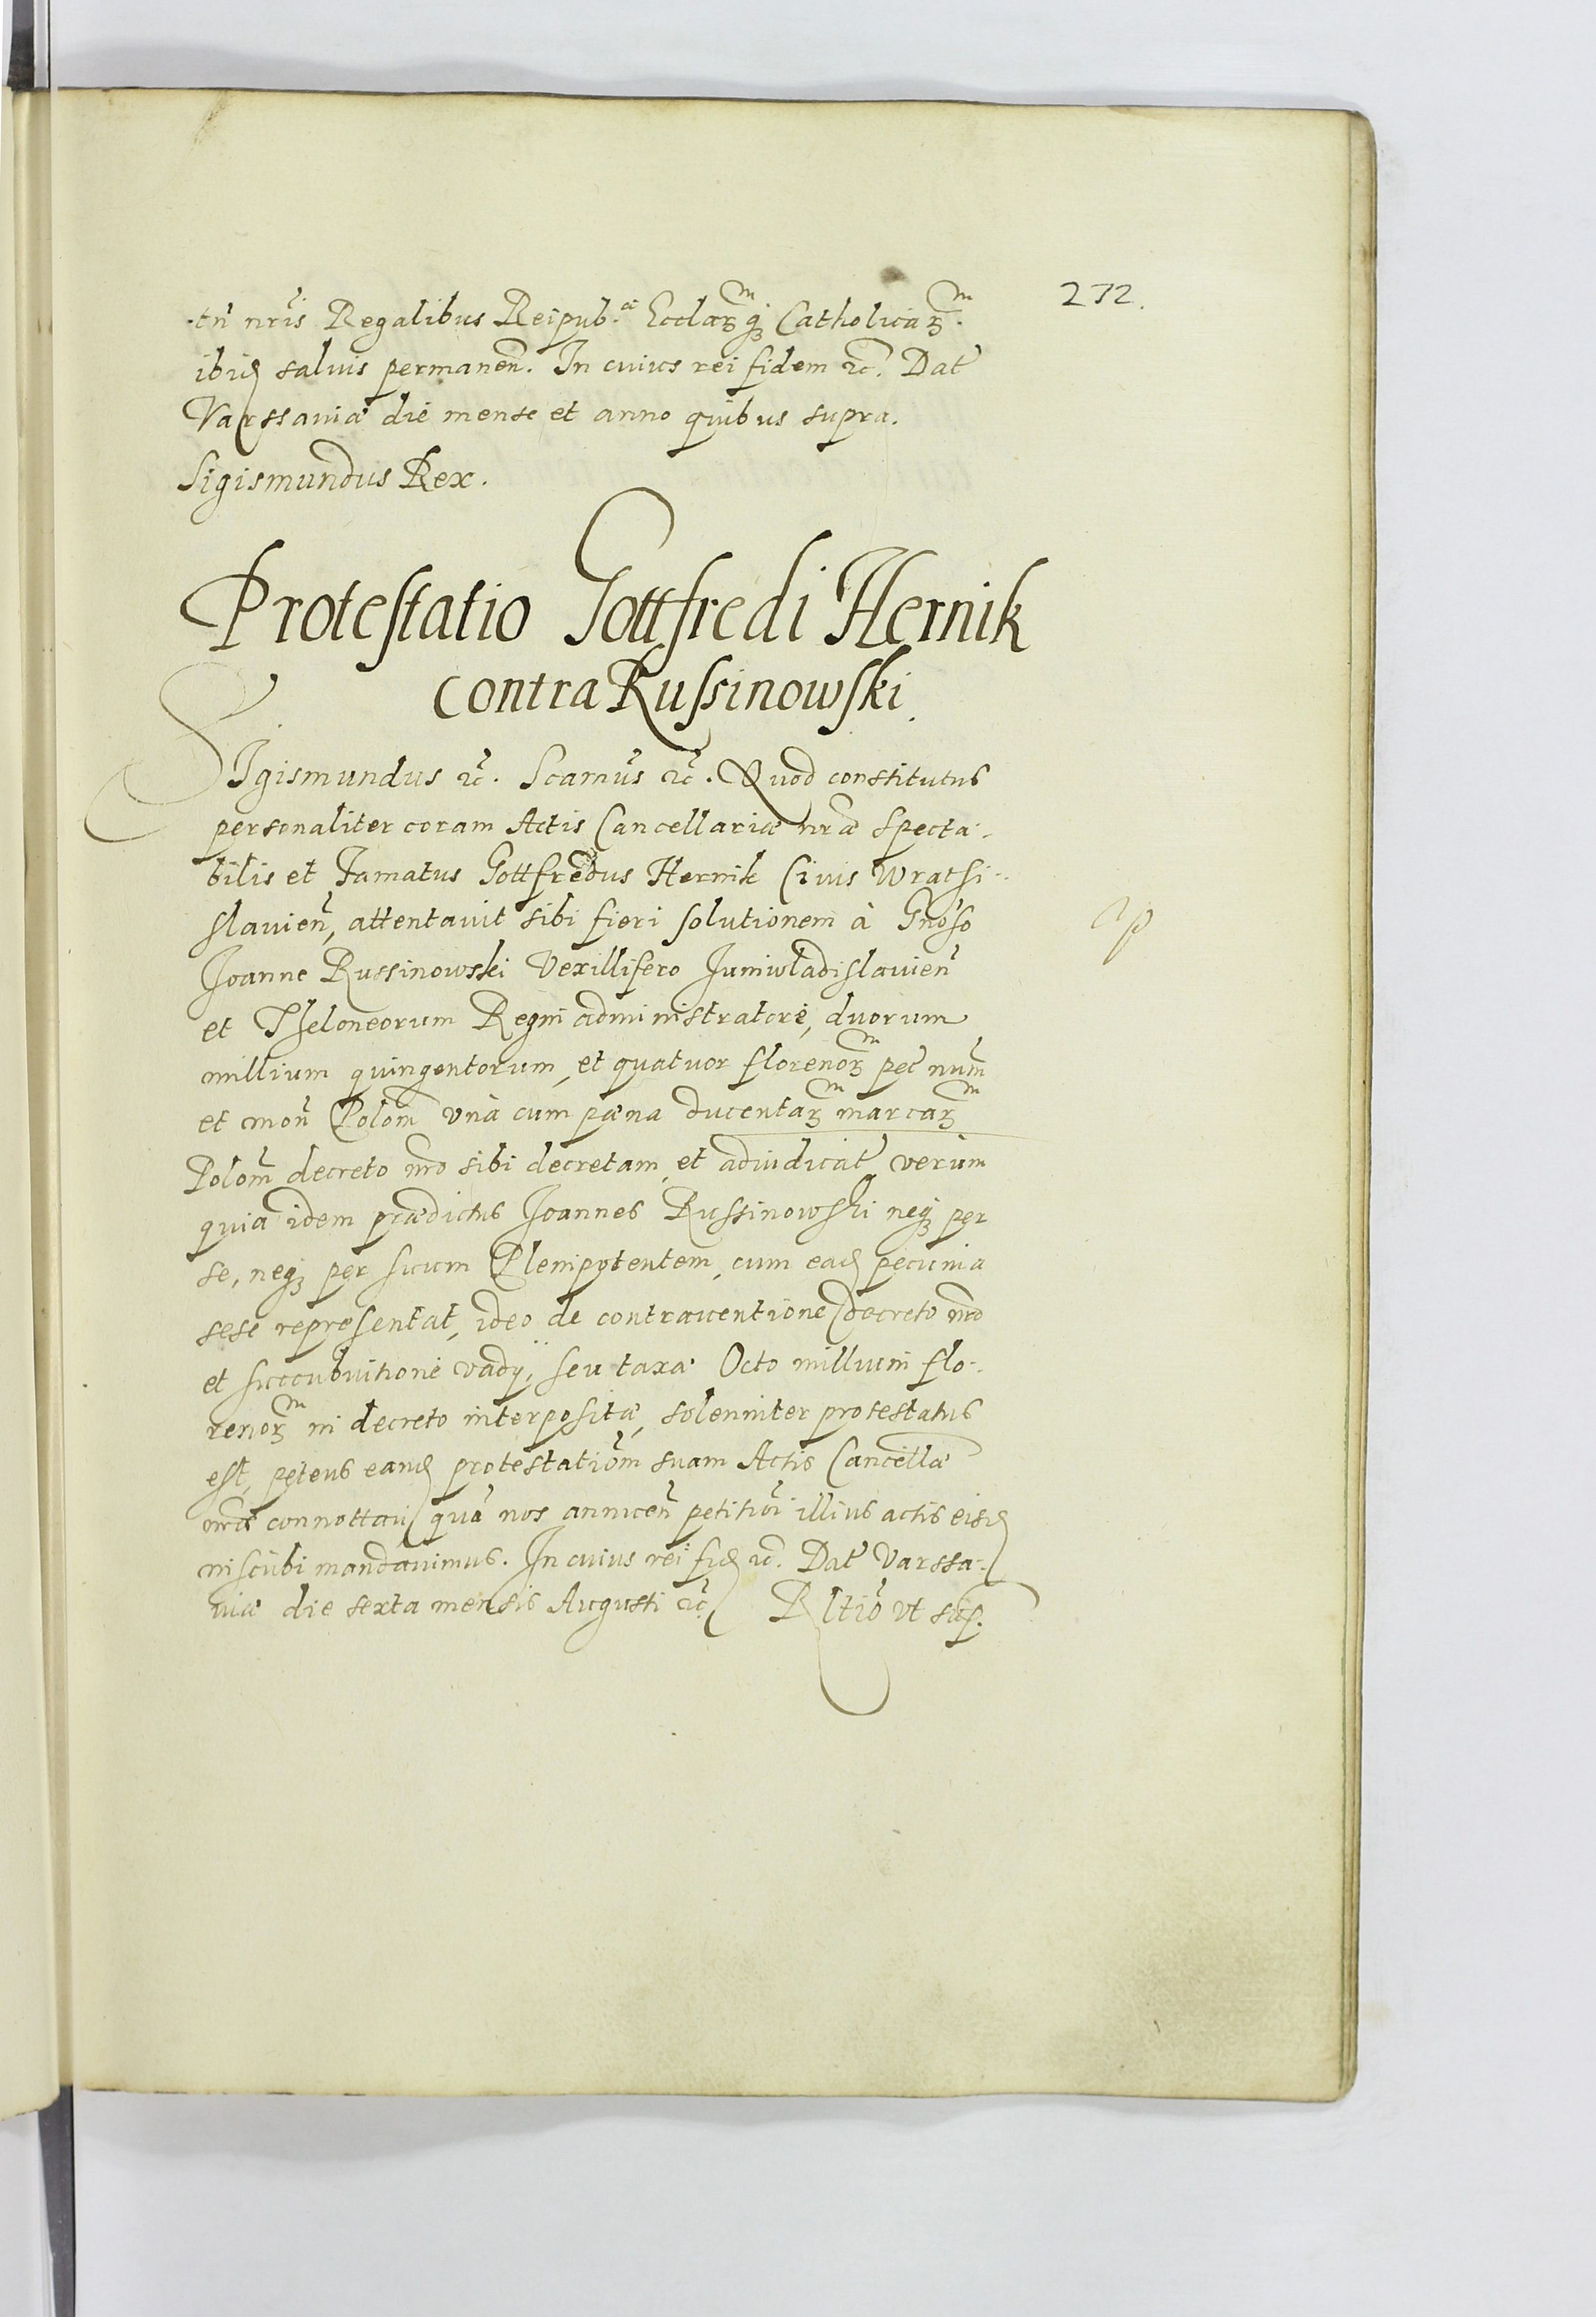 272.
tñ nr̃is Regalibus Reipub.cæ Ecclarꝫm qꝫ Catholicarꝫm.
ibid salvis permaneñ. In cuius rei fidem ꝛc̃. Dat̃
Varssaviæ die mense et anno quibus supra.
Sigismundus Rex.
Protestatio Gottfredi Hernik
contra Russinowski.
SIgismundus ꝛc̃. Scamus̃ ꝛc̃. Quod constitutus
personaliter coram Actis Cancellariæ nr̃æ specta-
bilis et Famatus Gottfredus Hernik Civis Wratsi-
slavieñ, attentavit sibi fieri solutionem à Gnoso
Joanne Russinowski Vexillifero Juniwladislavieñ
et Theloneorum Regni administratore, duorum
millium quingentorum, et quatuor florenorꝫm pec̃ num̃
et moñ Polom̃ unà cum pæna ducentarꝫm marcarꝫm
Polom̃ decreto nr̃o sibi decretam, et adiudicat̃, verùm
quia idem prædictus Joannes Russinowski neqꝫ per
se, neqꝫ per suum Plenipotentem, cum ead pecunia
sese representat, ideo de contraventione decreto nr̃o
et succubuitione vadÿ, seu taxæ Octo millium flo-
renorꝫm in decreto interpositæ, solenniter protestatus
est, petens eand protestatiom̃ suam Actis Cancellæ
nr̃æ connottari quã nos annueñ petitiõi illius actis eisd
inscribi mandavimus. In cuius rei fid ꝛc̃. Dat̃ Varssa-
viæ die sexta mensis Augusti ꝛc̃. Rltiõ ut sup.